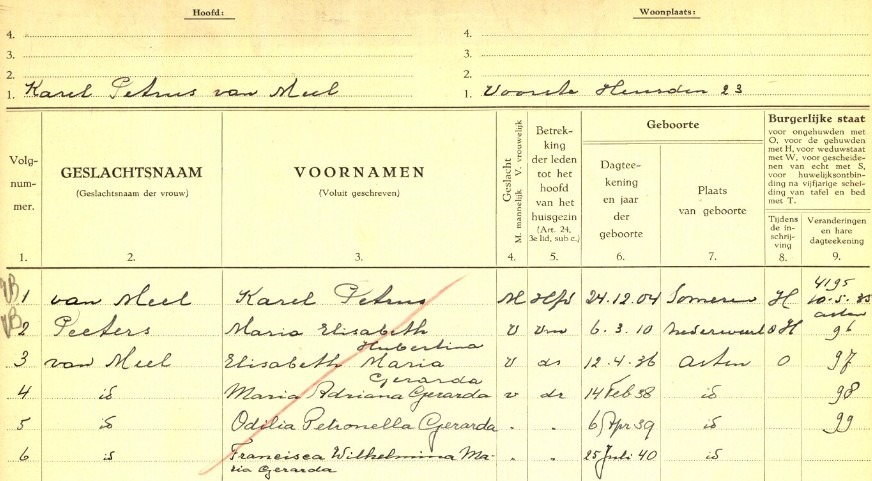 Hoofd:
Woonplaats:
4.
4.
3.
3.
2.
2.
1. Karel Petrus van Meel
1. Voorste Heusden 23
Volg-
num-
mer.
GESLACHTSNAAM
(Geslachtsnaam der vrouw)
VOORNAMEN
(Voluit geschreven)
Geslacht
M. mannelijk V. vrouwelijk
Betrek-
king
der leden
tot het
hoofd
van het
huisgezin
(Art. 24,
3e lid, sub c.)
Geboorte
Dagtee-
kening
en jaar
der
geboorte
Plaats
van geboorte
Burgerlijke staat
voor ongehuwden met
O, voor de gehuwden
met H, voor weduwstaat
met W, voor gescheide-
nen van echt met S,
voor huwelijksontbin-
ding na vijfjarige schei-
ding van tafel en bed
met T.
Tijdens
de in-
schrij-
ving
Veranderingen
en hare
dagteekening
1. 2. 3. 4. 5. 6. 7. 8. 9.
VB 1 van Meel Karel Petrus M Hfd 24.12.04 Someren H 4195 10.5.35 asten
VB 2 Peeters Maria Elisabeth Hubertina V vrw 6.3.10 Nederweert H 96
3 van Meel Elisabeth Maria Gerarda V dr 12.4.36 asten O 97
4 id Maria Adriana Gerarda v dr 14 Feb 38 id 98
5 id Odilia Petronella Gerarda " " 6 Apr 39 id 99
6 id Francisca Wilhelmina Ma-
ria Gerarda " " 25 Juli 40 id